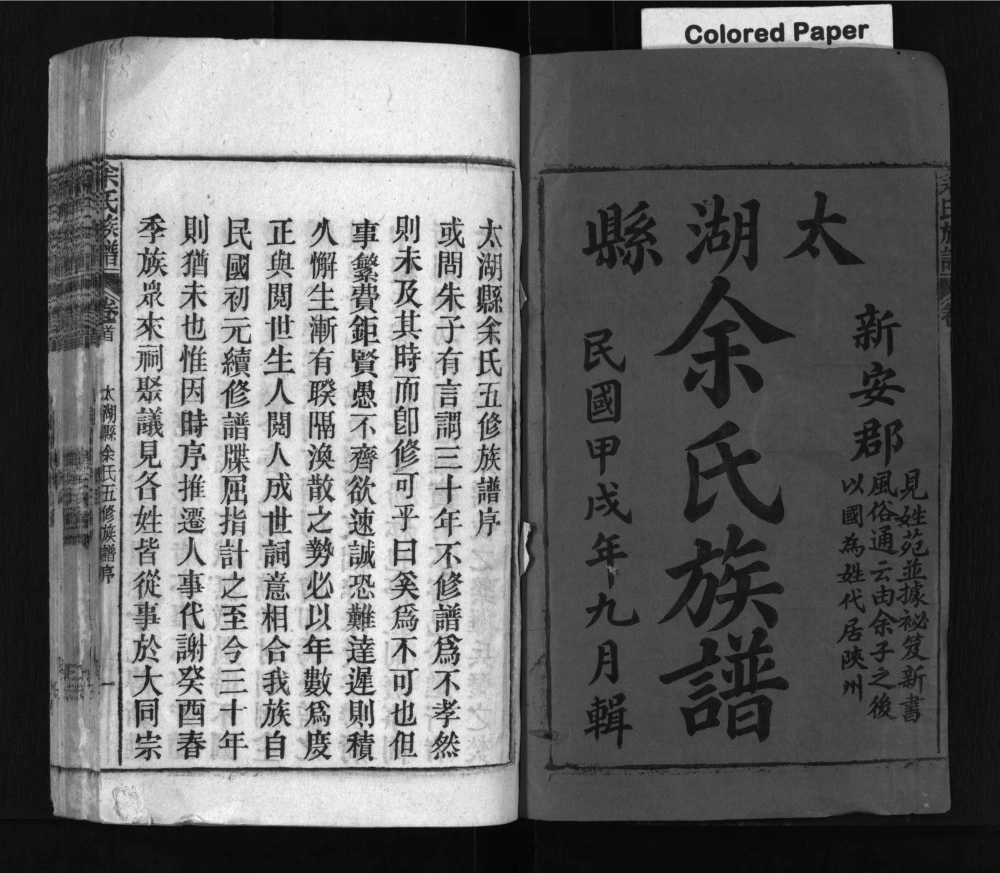 Colored Paper
太湖縣
新安郡
見姓苑並據祕笈新書
風俗通云由余子之後
以國為姓代居陝州
余氏族譜
民國甲戌年九月輯
太湖縣余氏五修族譜序
或問朱子有言謂三十年不修譜爲不孝然
則未及其時而卽修可乎曰奚爲不可也但
事繁費鉅賢愚不齊欲速誠恐難達遲則積
久懈生漸有睽隔渙散之勢必以年數爲度
正與閱世生人閱人成世詞意相合我族自
民國初元續修譜牒屈指計之至今三十年
則猶未也惟因時序推遷人事代謝癸酉春
季族衆來祠聚議見各姓皆從事於大同宗
余氏族譜
卷首
太湖縣余氏五修族譜序
一